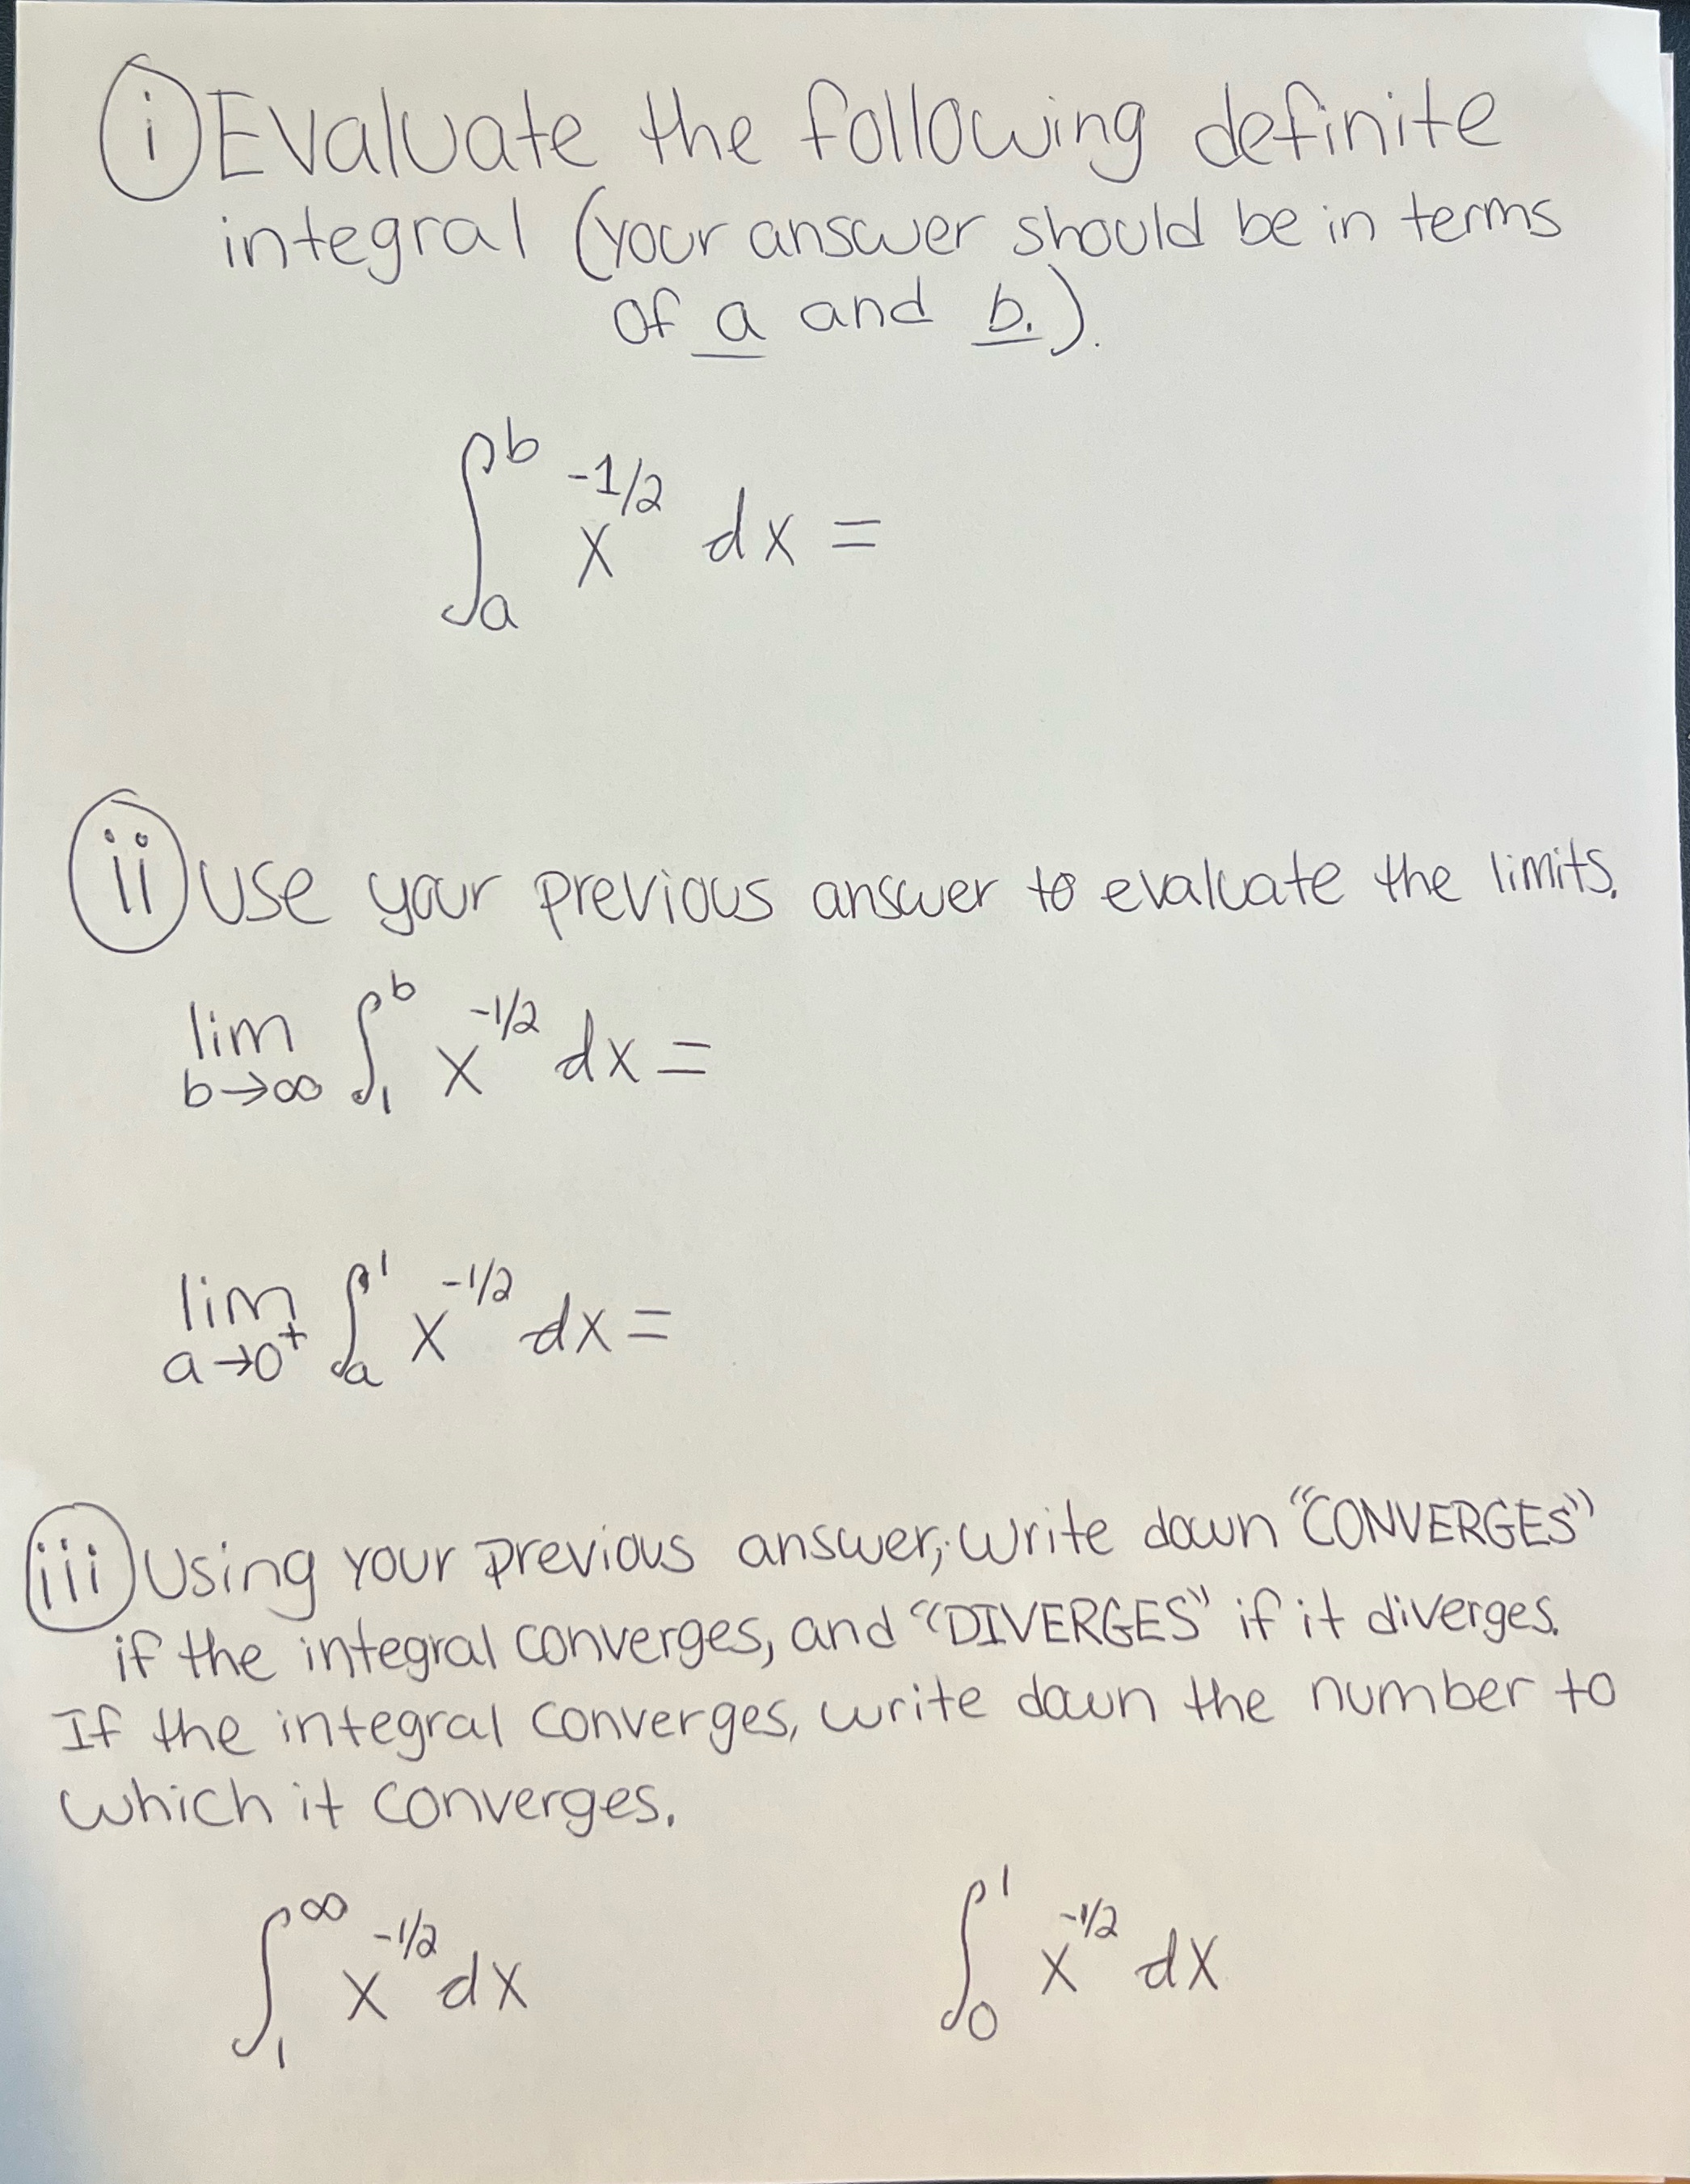 (i) Evaluate the following definite
integral (your answer should be in terms
of a and b.).
∫_a^b x^{-1/2} dx =
(ii) Use your previous answer to evaluate the limits.
lim_{b→∞} ∫_1^b x^{-1/2} dx =
lim_{a→0^+} ∫_a^1 x^{-1/2} dx =
(iii) Using your previous answer, write down "CONVERGES"
if the integral converges, and "DIVERGES" if it diverges.
If the integral converges, write down the number to
which it converges.
∫_1^∞ x^{-1/2} dx    ∫_0^1 x^{-1/2} dx